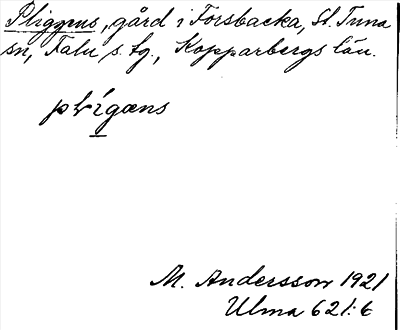 Pliggens, gård i Forsbacka, St. Tuna
sn, Falu s. tg., Kopparbergs län.
plígæns
M. Andersson 1921
Ulma 621:6